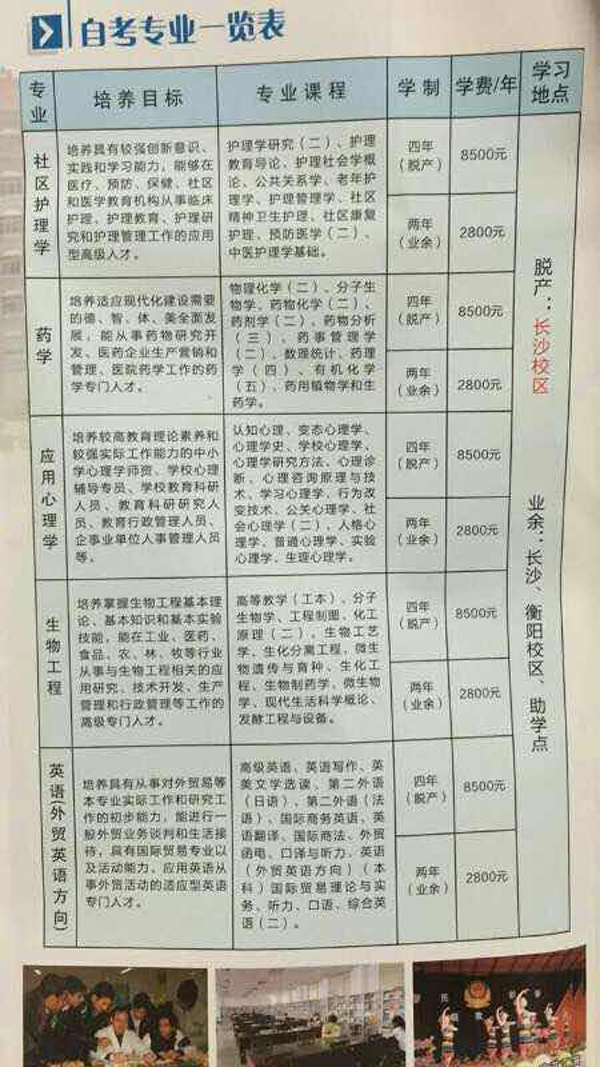 自考专业一览表
专业
培养目标
专业课程
学制
学费/年
学习
地点
社区护理学
培养具有较强创新意识、
实践和学习能力，能够在
医疗、预防、保健、社区
和医学教育机构从事临床
护理、护理教育、护理研
究和护理管理工作的应用
型高级人才。
护理学研究（二）、护理
教育导论、护理社会学概
论、公共关系学、老年护
理学、护理管理学、社区
精神卫生护理、社区康复
护理、预防医学（二）、
中医护理学基础。
四年
（脱产）
8500元
两年
（业余）
2800元
药学
培养适应现代化建设需要
的德、智、体、美全面发
展，能从事药物研究开
发、医药企业生产营销和
管理、医院药学工作的药
学专门人才。
物理化学（二）、分子生
物学、药物化学（二）、
药剂学（二）、药物分析
（三）、药事管理学
（二）、数理统计、药理
学（四）、有机化学
（五）、药用植物学和生
药学。
四年
（脱产）
8500元
两年
（业余）
2800元
应用心理学
培养较高教育理论素养和
较强实际工作能力的中小
学心理学师资、学校心理
辅导专员、学校教育科研
人员、教育科研研究人
员、教育行政管理人员、
企事业单位人事管理人员
等。
认知心理、变态心理学、
心理学史、学校心理学、
心理学研究方法、心理诊
断、心理咨询原理与技
术、学习心理学、行为改
变技术、公关心理学、社
会心理学（二）、人格心
理学、普通心理学、实验
心理学、生理心理学。
四年
（脱产）
8500元
两年
（业余）
2800元
生物工程
培养掌握生物工程基本理
论、基本知识和基本实验
技能，能在工业、医药、
食品、农、林、牧等行业
从事与生物工程相关的应
用研究、技术开发、生产
管理和行政管理等工作的
高级专门人才。
高等教学（工本）、分子
生物学、工程制图、化工
原理（二）、生物工艺
学、生化分离工程、微生
物遗传与育种、生化工
程、生物制药学、微生物
学、现代生活科学概论、
发酵工程与设备。
四年
（脱产）
8500元
两年
（业余）
2800元
英语(外贸英语方向)
培养具有从事对外贸易等
本专业实际工作和研究工
作的初步能力，能进行一
般外贸业务谈判和生活接
待，具有国际贸易专业以
及活动能力、应用英语从
事外贸活动的适应型英语
专门人才。
高级英语、英语写作、英
美文学选读、第二外语
（日语）、第二外语（法
语）、国际商务英语、英
语翻译、国际商法、外贸
函电、口译与听力、英语
（外贸英语方向）（本
科）国际贸易理论与实
务、听力、口语、综合英
语（二）。
四年
（脱产）
8500元
两年
（业余）
2800元
脱产：长沙校区
业余：长沙、衡阳校区、助学点